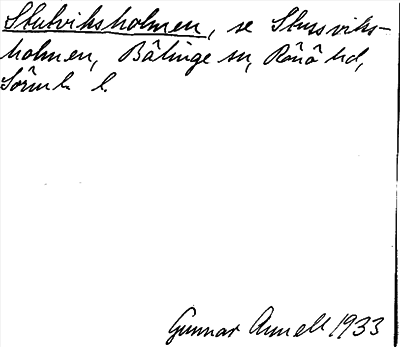 Stutviksholmen, se Stussviks-
holmen, Bälinge sn, Rönö hd,
Sörml. l.
Gunnar Annell 1933